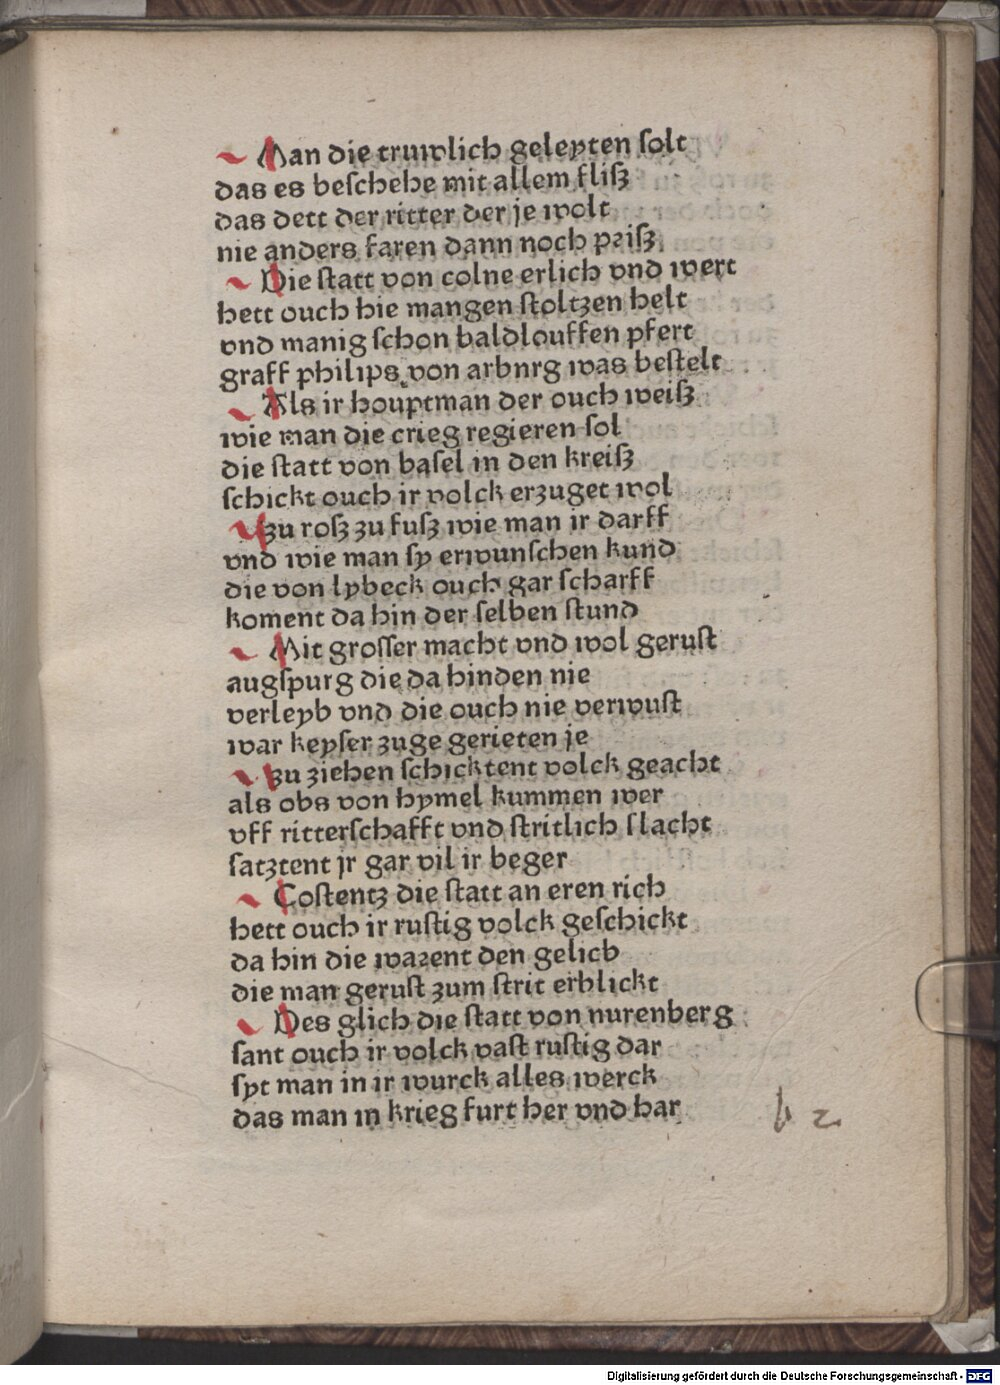 Man die truwlich geleyten ſolt
das es beſchehe mit allem fliſz
das dett der ritter der je wolt
nie anders faren dann noch pꝛiſz
Die ſtatt von colne erlich vnd wert
hett ouch hie mangen ſtoltzen helt
vnd manig ſchon baldlouffen pfert
graff philips von arbnrg was beſtelt
Als ir houptman der ouch weiſz
wie man die crieg regieren ſol
die ſtatt von baſel in den kreiſz
ſchickt ouch ir volck erzuget wol
zu roſz zu fuſz wie man ir darff
vnd wie man ſy erwunſchen kund
die von lybeck ouch gar ſcharff
koment da hin der ſelben ſtund
Mit groſſer macht vnd wol geruſt
augſpurg die da hinden nie
verleyb vnd die ouch nie verwuſt
war keyſer zuge gerieten je
zu ziehen ſchicktent volck geacht
als obs von hymel kummen wer
vff ritterſchafft vnd ſtritlich ſlacht
ſatztent jr gar vil ir beger
Coſtentz die ſtatt an eren rich
hett ouch ir ruſtig volck geſchickt
da hin die waꝛent den gelich
die man geruſt zum ſtrit erblickt
Des glich die ſtatt von nurenberg
ſant ouch ir volck vaſt ruſtig dar
ſyt man in ir wurck alles werck
das man in krieg furt her vnd har
b 2
Digitalisierung gefördert durch die Deutsche Forschungsgemeinschaft - DFG